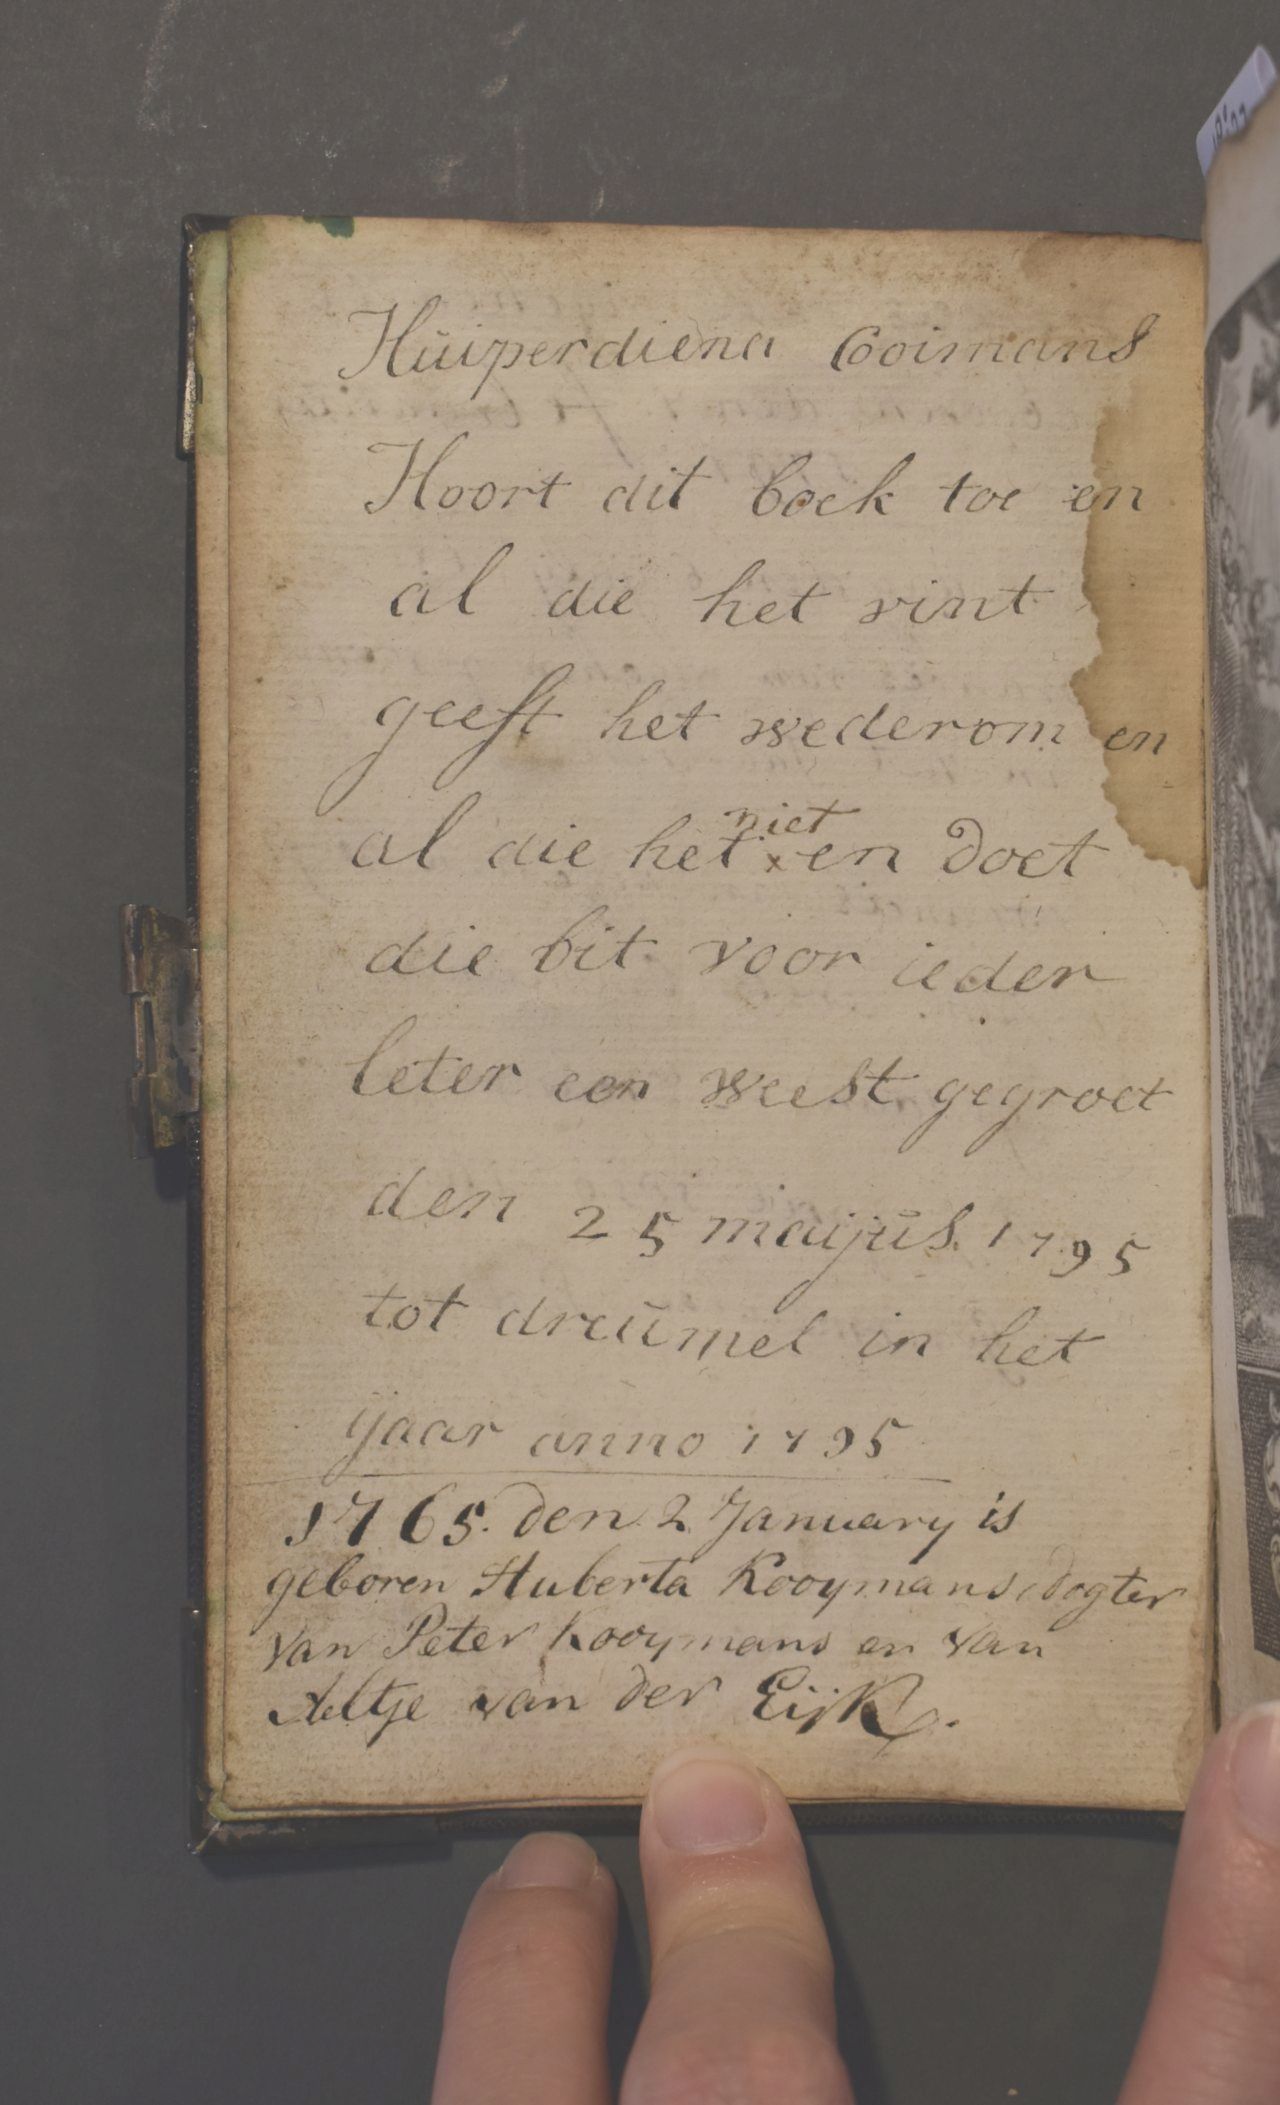 Hüiperdiena Cooimans
Hoort dit boek toe en
al die het vint
geeft het wederom en
al die het niet en doet
die bit voor ieder
leter een weest gegroet
den 25 maijüs 1795
tot dreümel in het
ijaar anno 1795
1765. den 2 January is
geboren Huberta Kooymans, dogter
van Peter Kooymans en van
Aeltje van der Eijk.